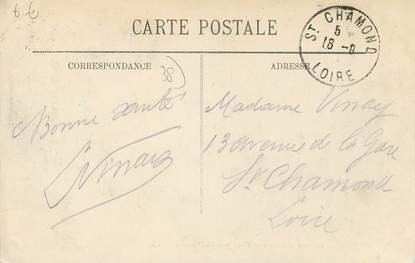 6€
CARTE POSTALE
ST CHAMOND
5
18 -9
LOIRE
CORRESPONDANCE
38
ADRESSE
Bonne santé
Vinay
Madame Vinay
13 avenue de la Gare
St Chamond
Loire